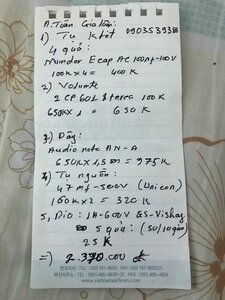 A. Tuấn Gia lâm:
1) Tụ khốt 0903539386
4 quả:
Mundor Ecap AC 100μf-100V
100K x 4 = 400K
2) Volume
2 CP 601 Stereo 100K
650K x 1 = 650K
3) Dây:
Audio note AN-A
650K x 1,5m = 975K
4) Tụ nguồn:
47mf-500V (Unicon)
160K x 2 = 320K
5, Dio: 1A-600V GS-Vishay
5 quả: (50/10 quả
25K
=) 2.370.000 đ
www.vietnamairlines.com